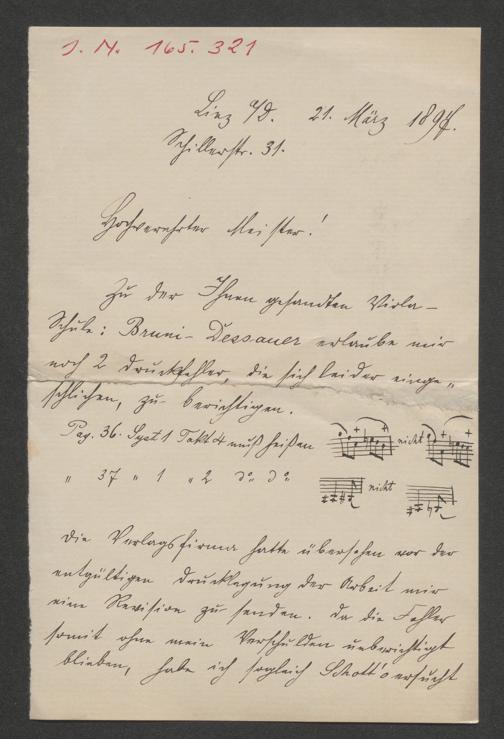 J. N. 165.321
Linz a/D. 21. März 1897.
Schillerstr. 31.
Hochverehrter Meister!
Zu der Ihnen gesandten Viola-
Schule: Bruni-Dessauer erlaube mir
noch 2 Druckfehler, die sich leider einge„
schlichen, zu berichtigen.
Pag. 36. Syst 1 Takt 4 muß heißen nicht
„ 37 „ 1 „ 2 do do nicht
Die Verlagsfirma hatte übersehen vor der
entgültigen Drucklegung der Arbeit mir
eine Revision zu senden. Da die Fehler
somit ohne mein Verschulden unberichtigt
blieben, habe ich sogleich Schott's ersucht